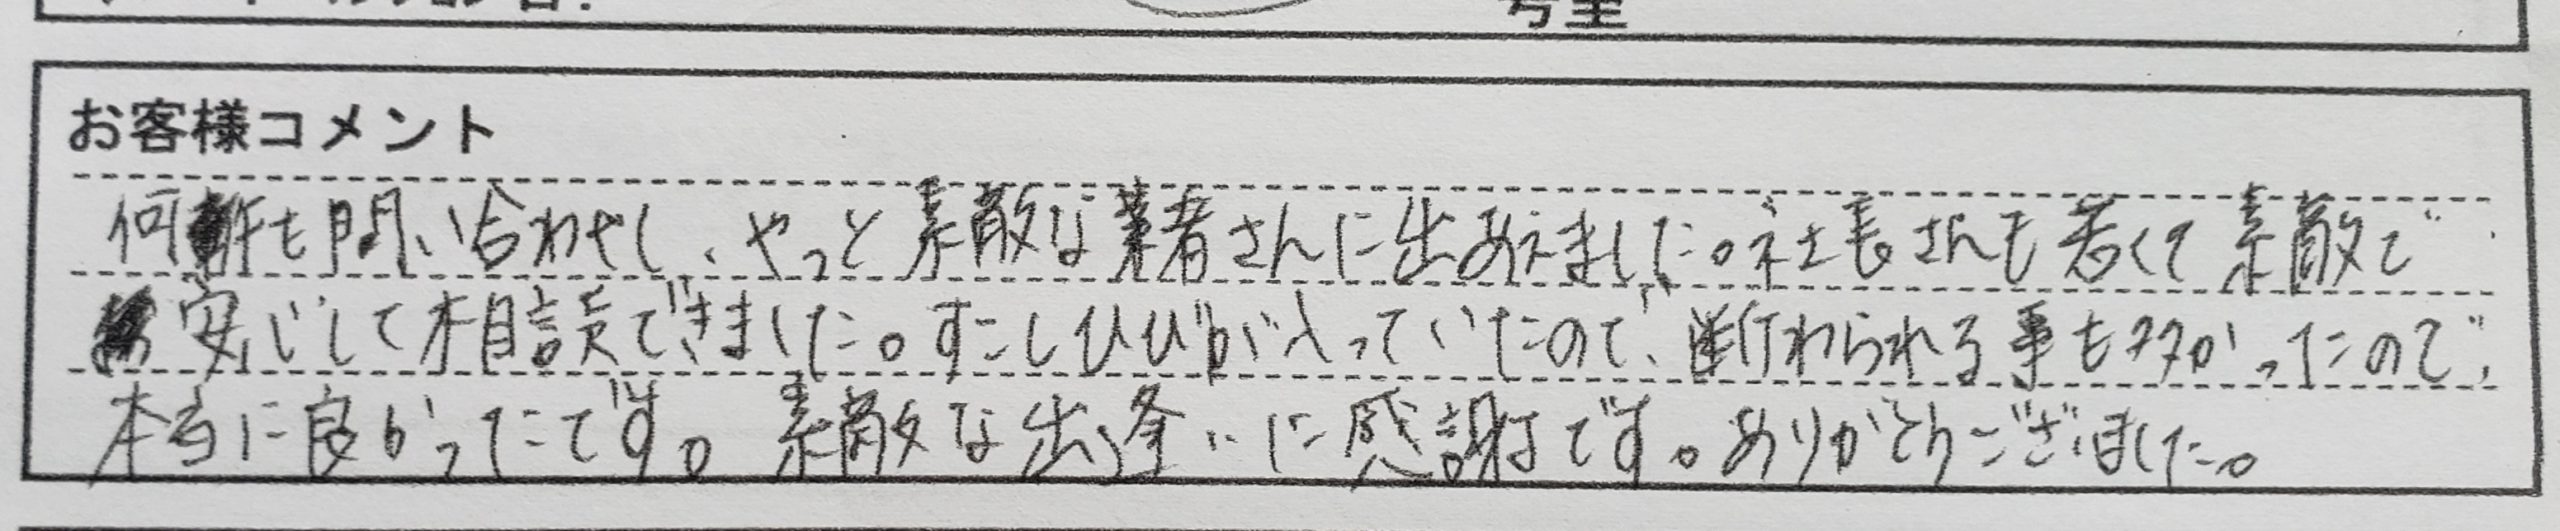 号室
お客様コメント
何軒も問い合わせし、やっと素敵な業者さんに出あえました。社長さんも若くて素敵で
安心して相談できました。すこしひびが入っていたので、断わられる事も多かったので、
本当に良かったです。素敵な出逢いに感謝です。ありがとうございました。